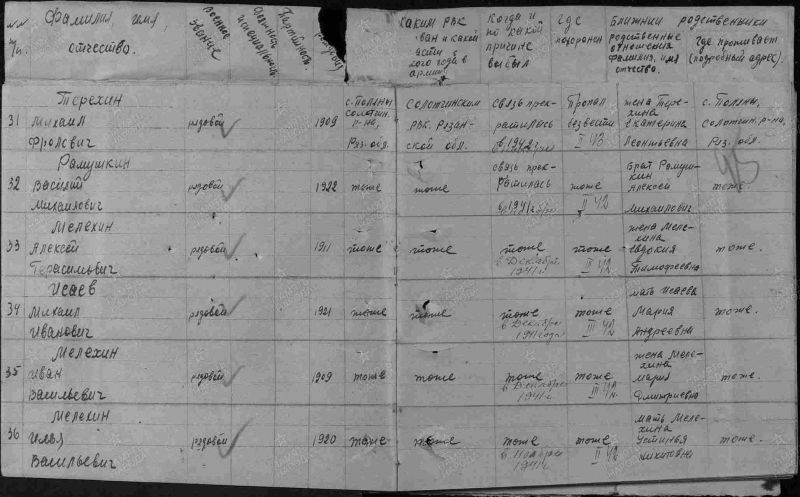 №№ п/п.
Фамилия, имя, отчество.
Военное звание
Партийность
каким РВК
ван и какой
кого года в
армии
Когда и
по какой
причине
выбыл
Где
похоронен
Ближний родственники
родственные
отношения
фамилия, имя
отчество.
где проживает
(подробный адрес).
31
Терехин
Михаил
Фролович
рядовой
1909
с. Поляны
солотчин.
р-на,
Ряз. обл.
солотчинским
РВК. Рязан-
ской обл.
связь прек-
ратилась
в 1942 г.
Пропал
безвести
II 43
жена Тере-
хина
Екатерина
Леонтьевна
с. Поляны,
солотчин. р-на,
Ряз. обл.
32
Рамушкин
Василий
Михаилович
рядовой
1922
тоже
тоже
связь прек-
ратилась
в 1941 г.
тоже
II 42
Брат Рамуш-
кин
Алексей
Михаилович
тоже
33
Мелехин
Алексей
Герасильович
рядовой
1911
тоже
тоже
тоже
в Декабре
1941 г.
тоже
II 42
жена Меле-
хина
Евдокия
Тимофеевна
тоже.
34
Исаев
Михаил
Иванович
рядовой
1921
тоже
тоже
тоже
в Декабре
1941 года
тоже
III 42
мать Исаева
Мария
Андреевна
тоже.
35
Мелехин
Иван
Васильевич
рядовой
1909
тоже
тоже
тоже
в Декабре
1941 г.
тоже
III 42
жена Меле-
хина
Мария
Дмитриевна
тоже.
36
Мелехин
Илья
Васильевич
рядовой
1920
тоже
тоже
тоже
в Ноябре
1941 г.
тоже
II 42
мать Меле-
хина
Устинья
Никитовна
тоже.